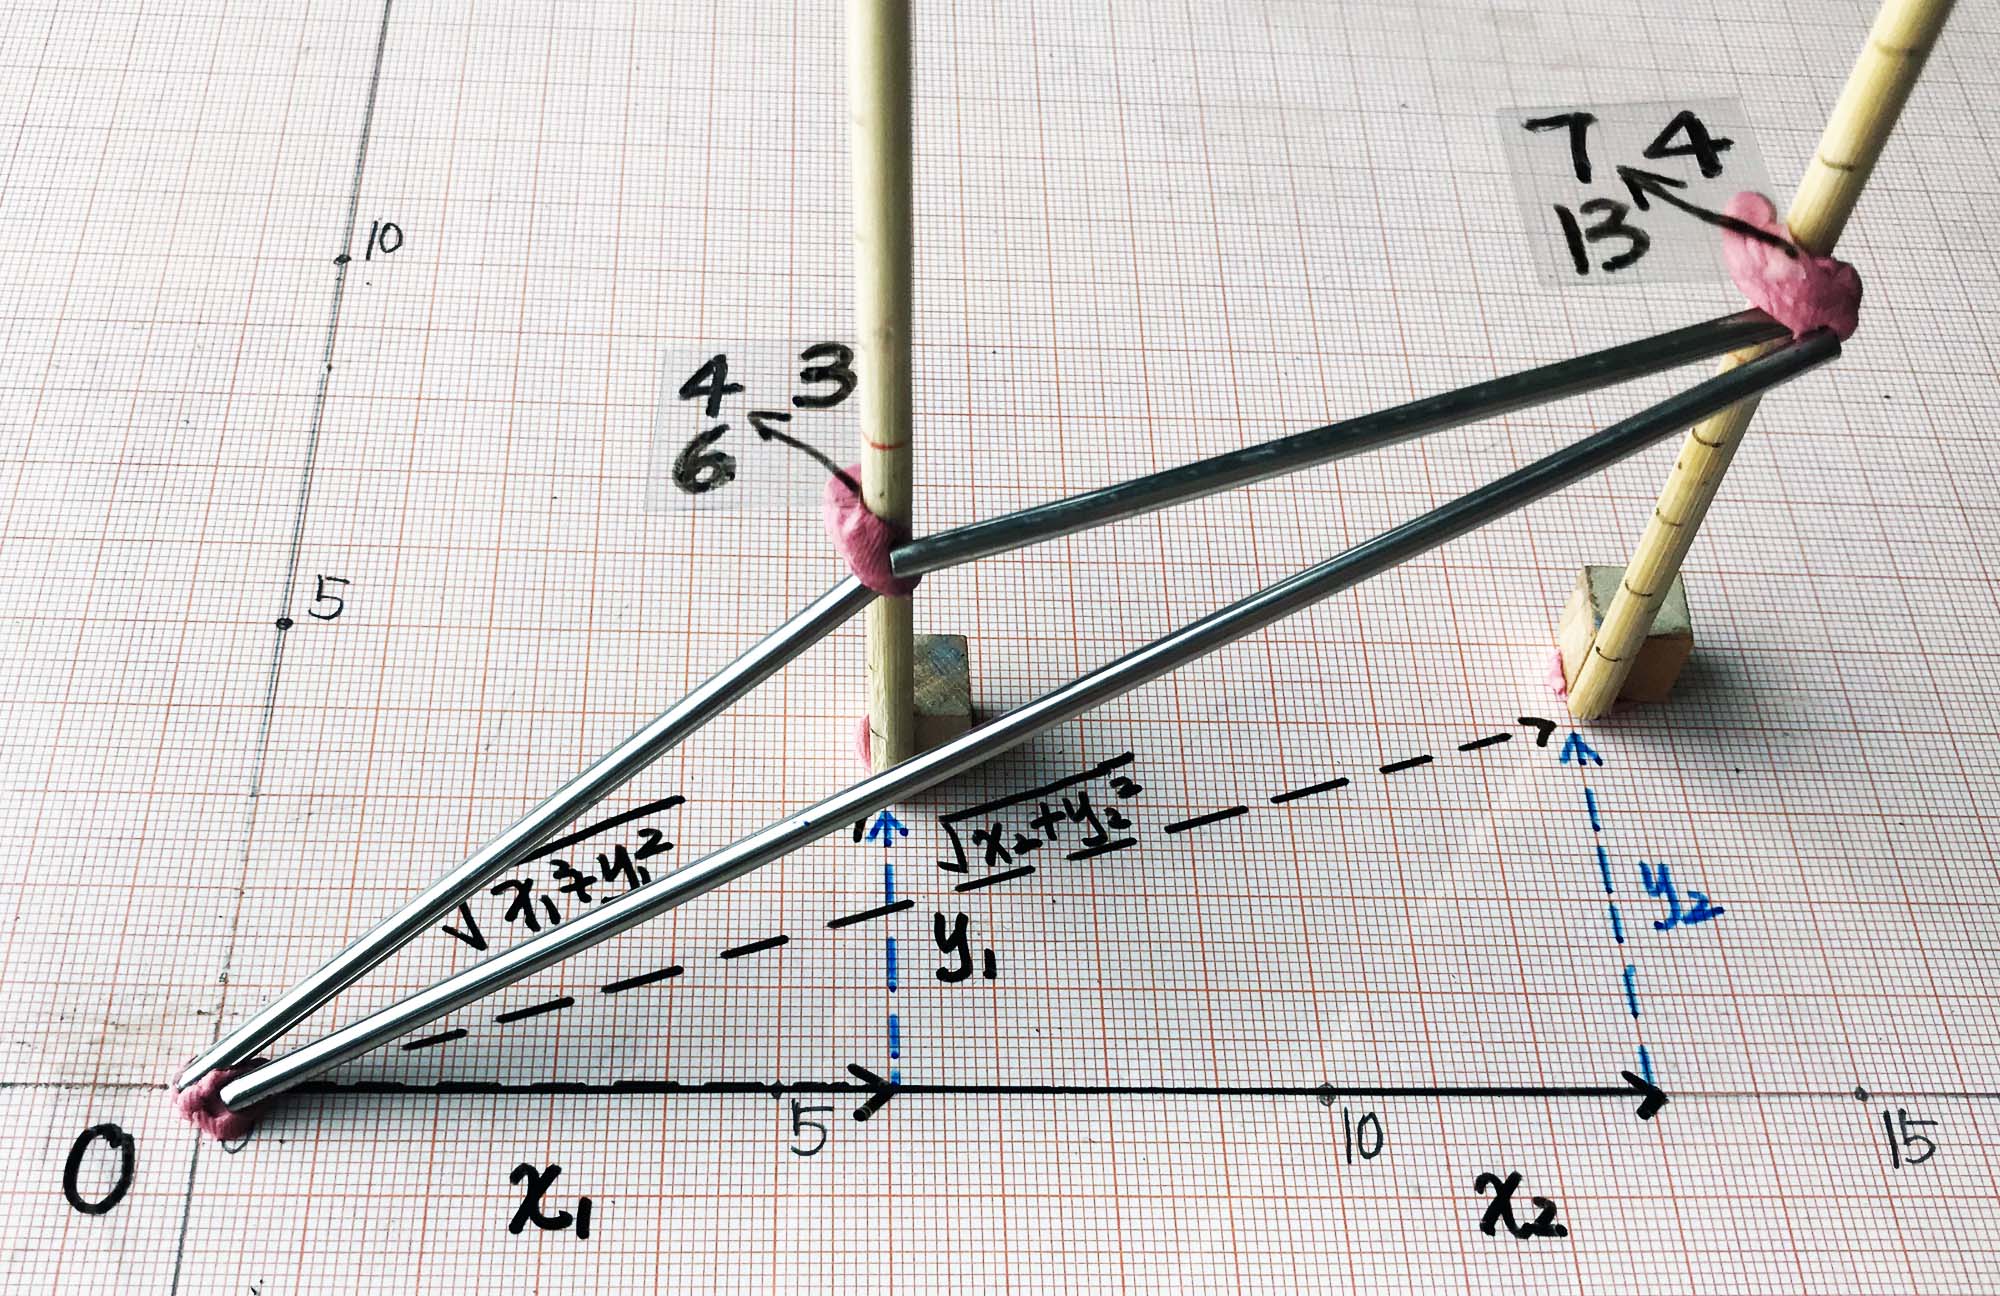 7 4
13
10
4 3
6
5
√x₁²+y₁²
√x₂+y₂²
y₁
y₂
0
5
10
15
x₁
x₂